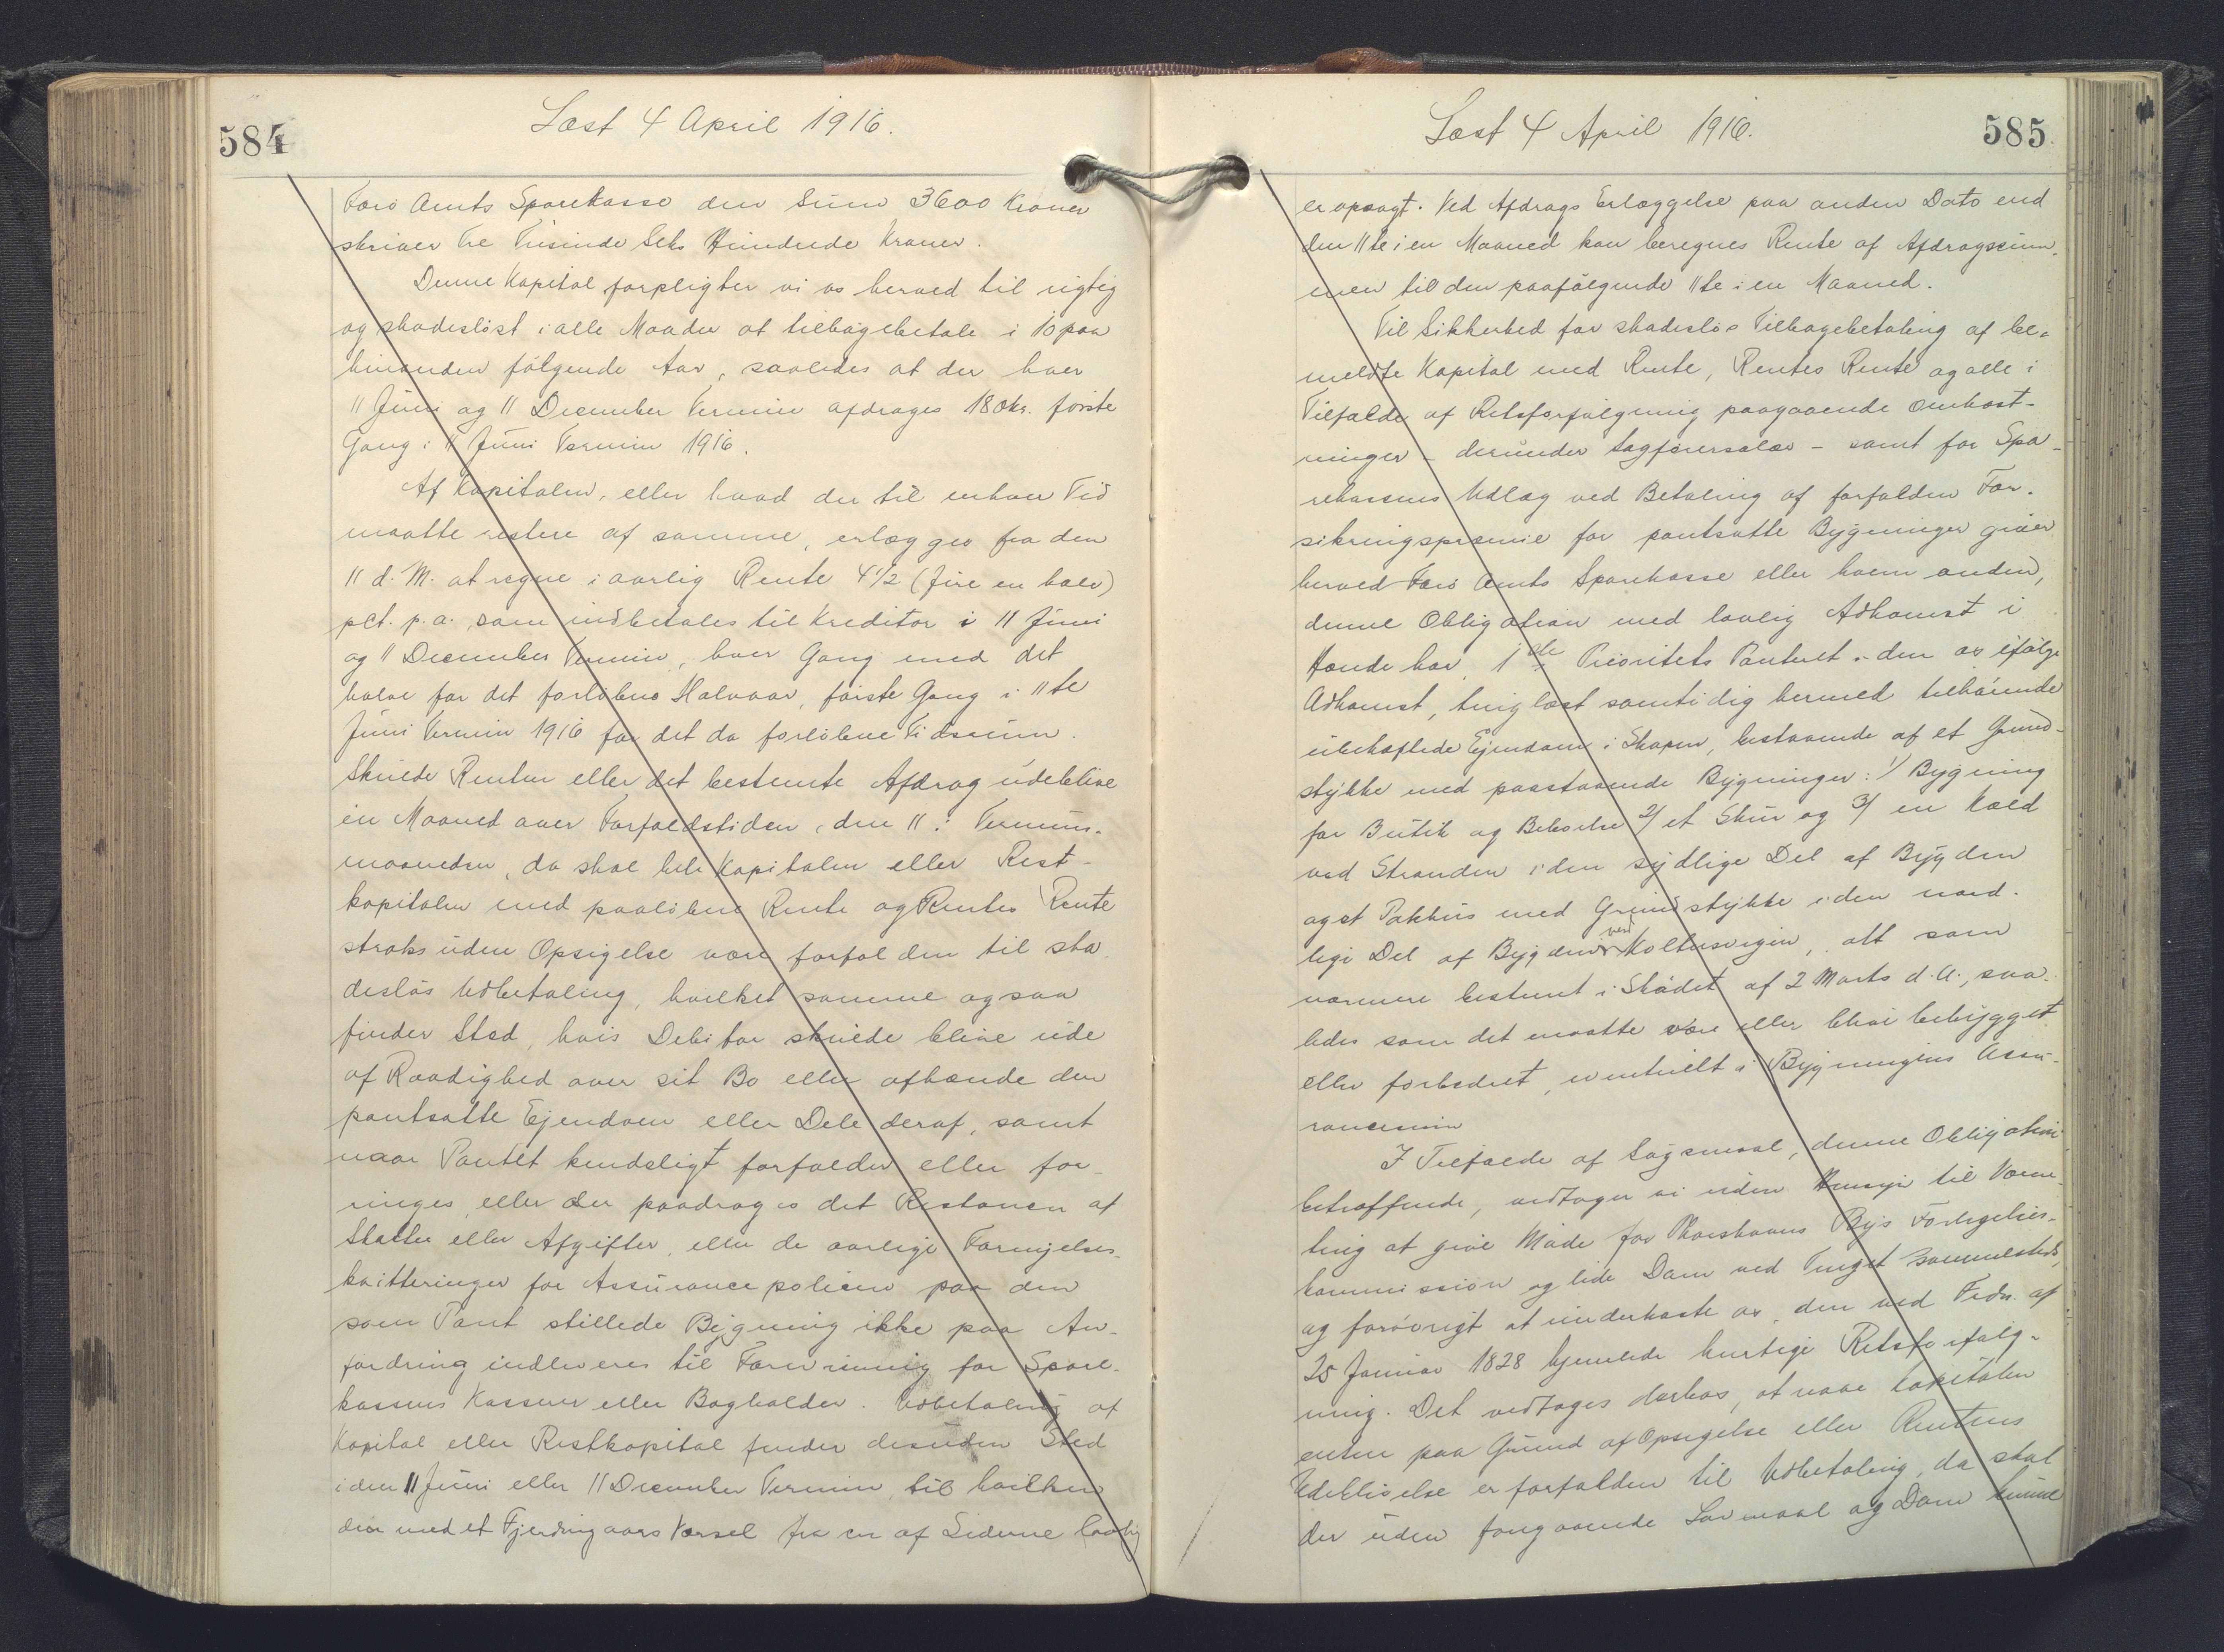 584
Læst 4 April 1916.
Færø Amts Sparekasse den Sum 3600 Kroner
skriver Tre Tusinde Seks Hundrede Kroner.
Denne Kapital forpligter vi os herved til rigtig
og skadesløst i alle Maader at tilbagebetale i 10 paa
hinanden følgende Aar, saaledes at der hver
11 Juni og 11 December Termin afdrages 180 kr. første
Gang i 11 Juni Termin 1916.
Af Kapitalen, eller hvad der til enhver Tid
maatte restere af samme, erlægges fra den
11 d. M. at regne i aarlig Rente 4½ (fire en halv)
pCt. p.a. som indbetales til Kreditor i 11 Juni
og 11 December Termin, hver Gang med det
halve for det forløbne Halvaar, første Gang i 11te
Juni Termin 1916 for det da forløbne Tidsrum.
Skulde Renten eller det bestemte Afdrag udeblive
en Maaned over Forfaldstiden, den 11. i Termins-
maaneden, da skal hele Kapitalen eller Rest-
kapitalen med paaløbne Rente og Rentes Rente
straks uden Opsigelse være forfalden til ska
desløs Udbetaling, hvilket samme ogsaa
finder Sted, hvis Debitor skulde blive ude
af Raadighed over sit Bo eller afhænde den
pantsatte Ejendom eller Dele deraf, samt
naar Pantet kendeligt forfalder eller for-
ringes, eller der paadrages det Restancer af
Skatter eller Afgifter, eller de aarlige Fornyelses-
kvitteringer for Assurancepolicen paa den
som Pant stillede Bygning ikke paa An-
fordring indleveres til Forevisning for Spare-
kassens Kasserer eller Bogholder. Udbetaling af
Kapital eller Restkapital finder desuden Sted
i den 11 Juni eller 11 December Termin, til hvilken
den med et Fjerdingaars Varsel fra en af Siderne lovlig
585
Læst 4 April 1916.
er opsagt. Ved Afdrags Erlæggelse paa anden Dato end
den 11te i en Maaned kan beregnes Rente af Afdragssum-
men til den paafølgende 11te i en Maaned.
Til Sikkerhed for skadesløs Tilbagebetaling af be-
meldte Kapital med Rente, Rentes Rente og alle i
Tilfælde af Retsforfølgning paagaaende Omkost-
ninger – derunder Sagførersalær – samt for Spa-
rekassens Udlæg ved Betaling af forfalden For-
sikringspræmie for pantsatte Bygninger giver
herved Færø Amts Sparekasse eller hvem anden,
denne Obligation med lovlig Adkomst i
Hænde har, 1ste Prioritets Panteret i den os ifølge
Adkomst, tinglæst samtidig hermed tilhørende
ubehæftede Ejendom i Skopen, bestaaende af et Grund-
stykke med paastaaende Bygninger: 1/ Bygning
for Butik og Beboelse 2/ et Skur og 3/ en Kæld
ved Stranden i den sydlige Del af Bygden
og et Pakhus med Grundstykke i den nord-
lige Del af Bygden ved Koltursvigin, alt som
nærmere bestemt i Skødet af 2 Marts d. A., saa-
ledes som det maatte være eller blive bebygget
eller forbedret, eventuelt i Bygningens Assu-
rancesum
I Tilfælde af Søgsmaal, denne Obligation
betræffende, vedtager vi uden Hensyn til Værne-
ting at give Møde for Thorshavns Bys Forligelses-
kommission og lide Dom ved Tinget sammesteds,
og forøvrigt at underkaste os, den ved Frdn. af
25 Januar 1828 hjemlede hurtige Retsforfølg-
ning. Det vedtages derhos, at naar Kapitalen
enten paa Grund af Opsigelse eller Rentens
Udeblivelse er forfalden til Udbetaling, da skal
der uden foregaaende Lovmaal og Dom kunne